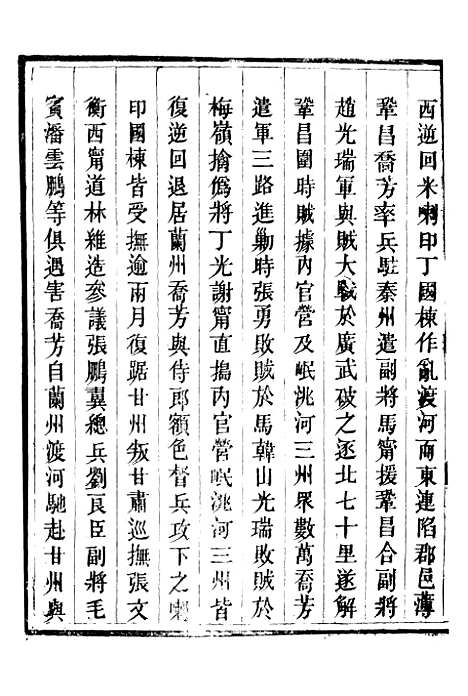 西逆回米喇印丁國棟作亂渡河而東連陷郡邑薄
鞏昌喬芳率兵駐秦州遣副將馬甯援鞏昌合副將
趙光瑞軍與賊大戰於廣武破之逐北七十里遂解
鞏昌圍時賊據內官營及岷洮河三州眾數萬喬芳
遣軍三路進勦時張勇敗賊於馬韓山光瑞敗賊於
梅嶺擒僞將丁光謝甯直搗內官營岷洮河三州皆
復逆回退居蘭州喬芳與侍郎額色督兵攻下之喇
印國棟皆受撫逾兩月復踞甘州叛甘肅巡撫張文
衡西甯道林維造參議張鵬翼總兵劉良臣副將毛
鑌潘雲鵬等俱遇害喬芳自蘭州渡河馳赴甘州與